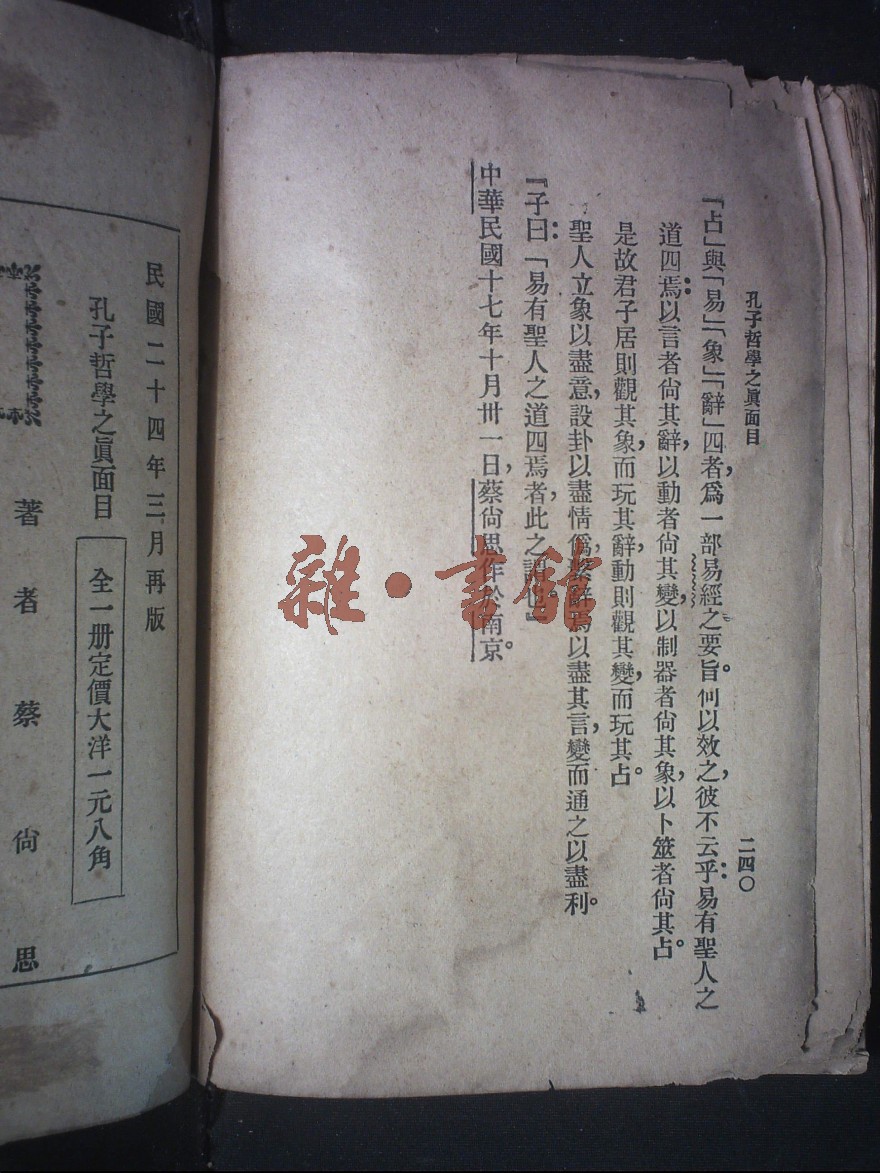 孔子哲學之眞面目
二四〇
「占」與「易」「象」「辭」四者，爲一部易經之要旨。何以效之，彼不云乎：易有聖人之
道四焉：以言者尙其辭，以動者尙其變，以制器者尙其象，以卜筮者尙其占。
是故君子居則觀其象，而玩其辭，動則觀其變，而玩其占。
聖人立象以盡意，設卦以盡情僞，繫辭焉以盡其言，變而通之以盡利。
『子曰：「易有聖人之道四焉者，此之謂也』
中華民國十七年十月卅一日，蔡尙思作於南京。
雜·書館
民國二十四年三月再版
孔子哲學之眞面目
全一册定價大洋一元八角
著者蔡尙思